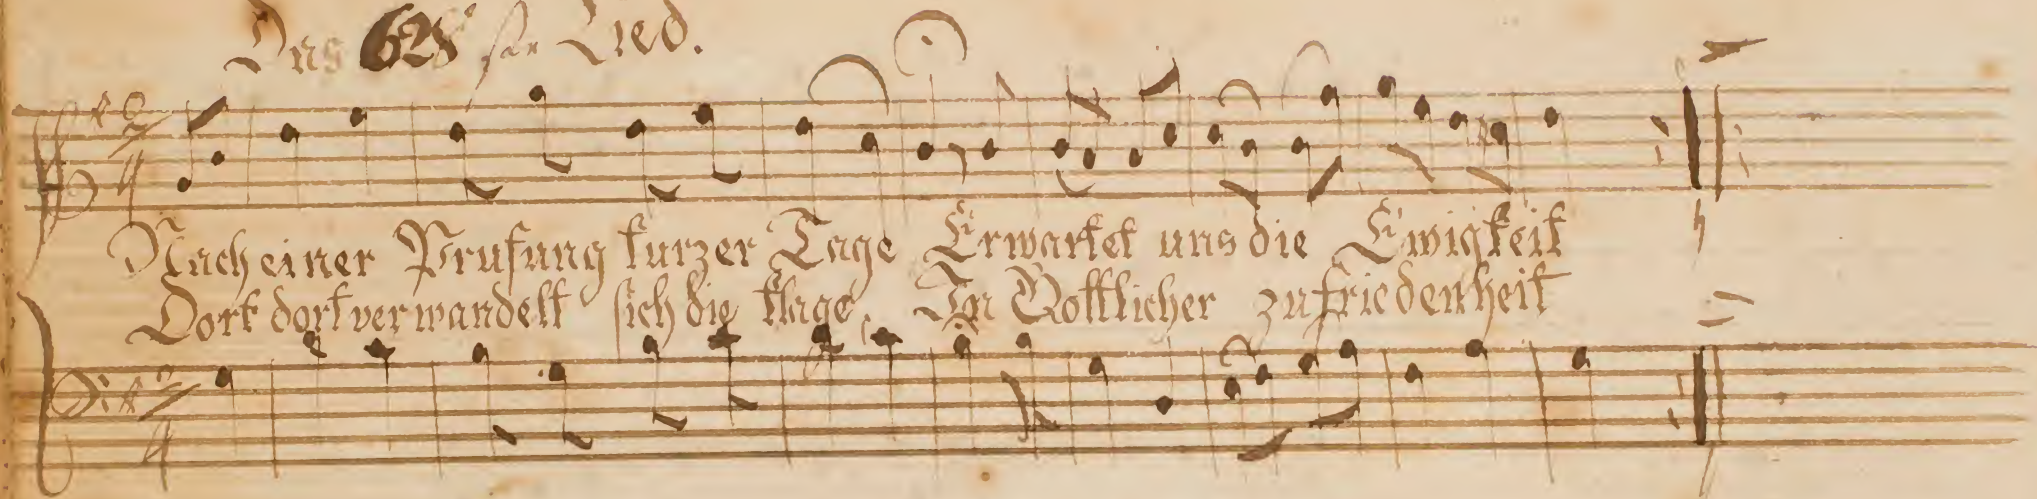 Das 628 ste Lied.
2
4
Nach einer Prufung kurzer Tage Erwartet uns die Ewigkeit
Dort dort verwandelt sich die klage, In Gottlicher zufriedenheit
2
4